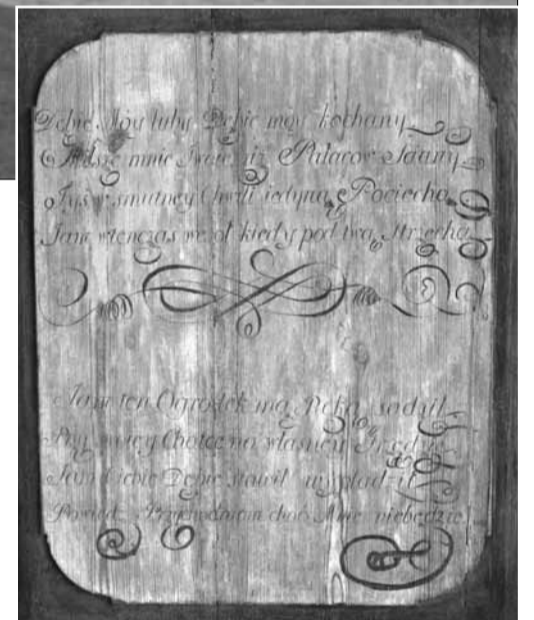 Dębie Móy luby Dębie móy kochany
mnie Twoie niż Pałacow Sciany
Tyś w smutney Chwili iedyna Pociecha
Jam wtenczas wesoł kiedy pod twą strzechą
Jam ten Ogrodek mą Ręką sadził
Przy Chatce na własney
Jam Ciebie Dębie stawił
Powiedz Przychodniom choć Mnie niebędzie